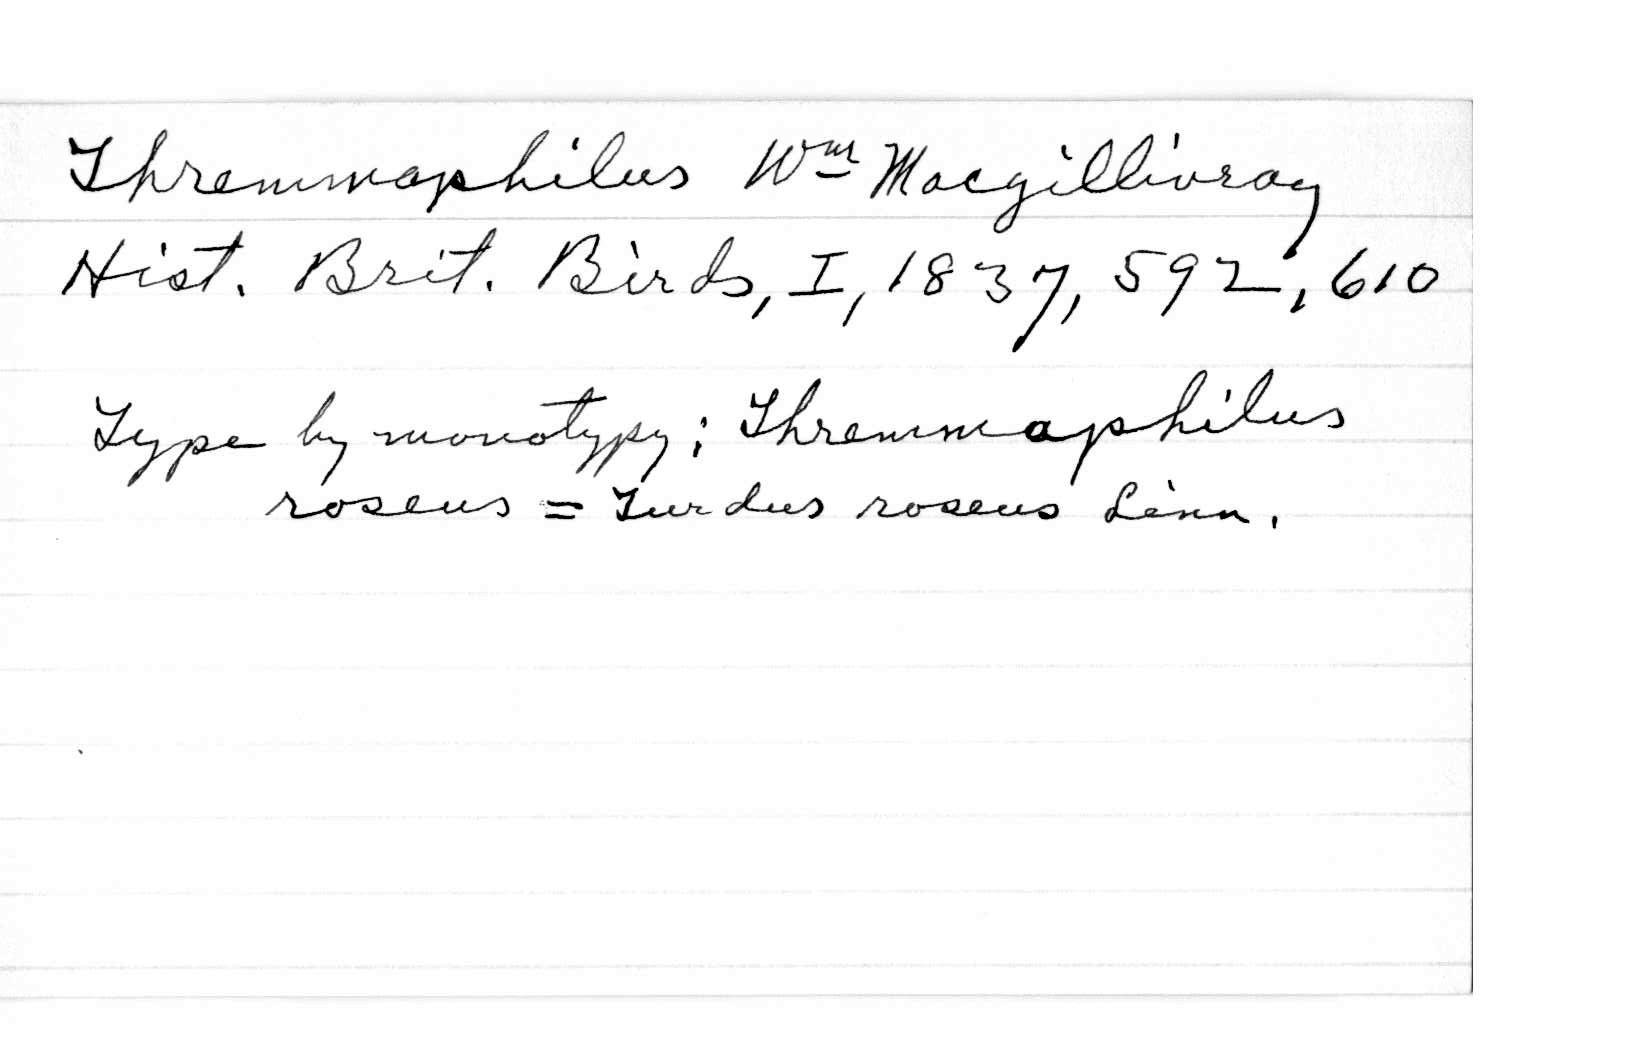 Thremmaphilus Wm Macgillivray
Hist. Brit. Birds, I, 1837, 592, 610
Type by monotypy; Thremmaphilus
roseus = Turdus roseus Linn.